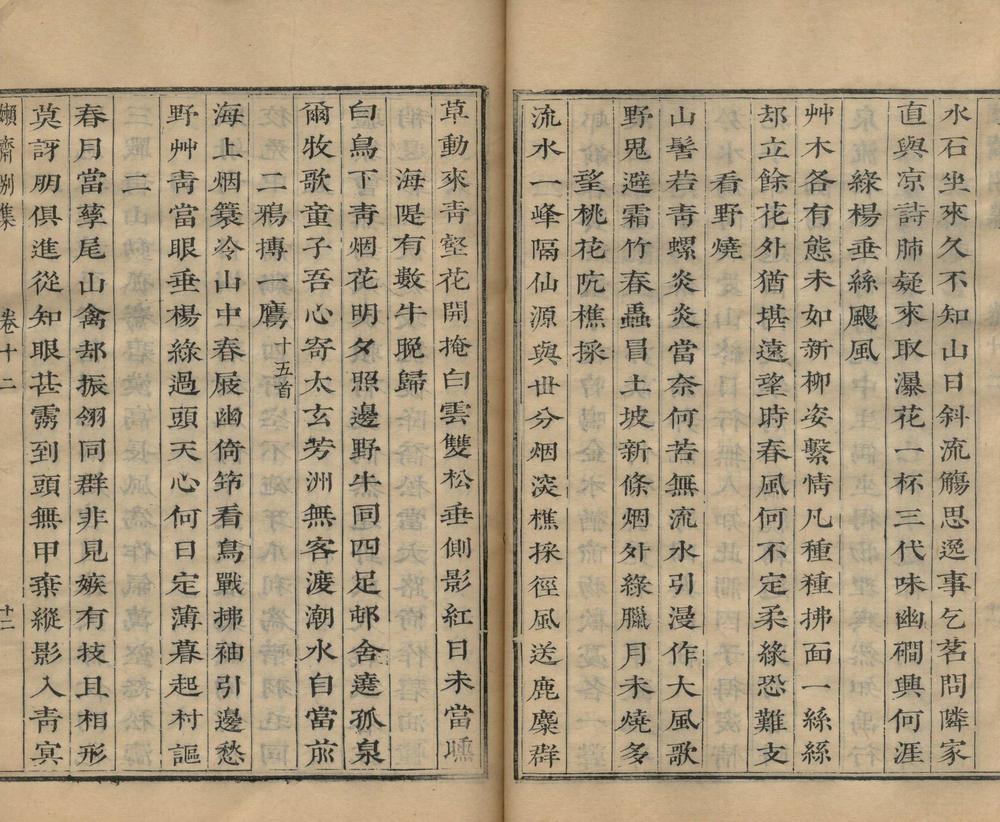 水石坐來久不知山日斜流觴思逸事乞茗問隣家
直與凉詩肺疑來取瀑花一杯三代味幽磵興何涯
綠楊垂絲颺風
艸木各有態未如新柳姿繫情凡種種拂面一絲絲
却立餘花外猶堪遠望時春風何不定柔緣恐難支
看野燒
山髻若靑螺炎炎當奈何苦無流水引漫作大風歌
野鬼避霜竹春蟲冒土坡新條烟外綠臘月未燒多
望桃花阬樵採
流水一峰隔仙源與世分烟淡樵採徑風送鹿麋群
草動來靑壑花開掩白雲雙松垂側影紅日未當曛
海隄有數牛晚歸
白鳥下靑烟花明夕照邊野牛同四足邨舍遶孤泉
爾牧歌童子吾心寄太玄芳洲無客渡潮水自當前
二鴉摶一鷹十五首
海上烟簑冷山中春屐幽倚筇看鳥戰拂袖引邊愁
野艸靑當眼垂楊綠過頭天心何日定薄暮起村謳
二
春月當孳尾山禽却振翎同群非見嫉有技且相形
莫訝朋俱進從知眼甚靈到頭無甲棄縱影入靑冥
嬾齋別集 卷十二 十二